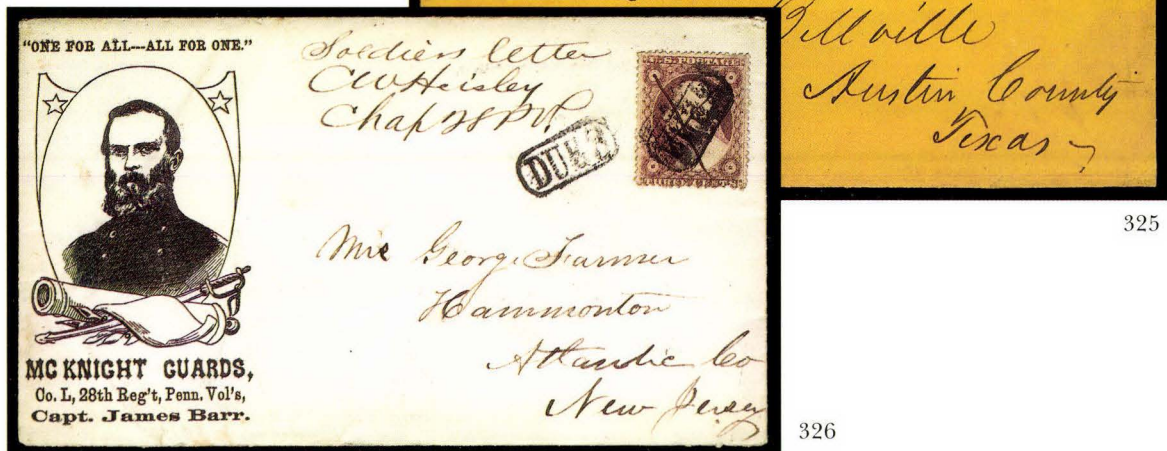 "ONE FOR ALL---ALL FOR ONE."
MC KNIGHT GUARDS,
Co. L, 28th Reg't, Penn. Vol's,
Capt. James Barr.
Soldiers letter
CW Heisley
Chap 28 P.V.
DUE 3
U.S. POSTAGE
THREE CENTS
Mrs George Farmer
Hammonton
Atlantic Co
New Jersey
Bellville
Austin County
Texas
325
326